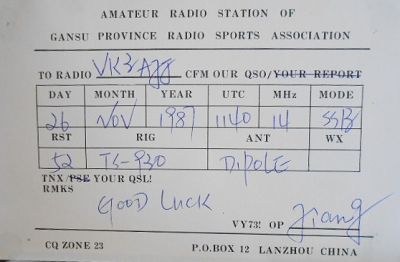 AMATEUR RADIO STATION OF
GANSU PROVINCE RADIO SPORTS ASSOCIATION
TO RADIO VK3AJJ CFM OUR QSO/YOUR REPORT
DAY MONTH YEAR UTC MHz MODE
26 NOV 1987 1140 14 SSB
RST RIG ANT WX
52 TS-930 DIPOLE
TNX/PSE YOUR QSL!
RMKS GOOD LUCK
VY73! OP Jiang
CQ ZONE 23 P.O.BOX 12 LANZHOU CHINA